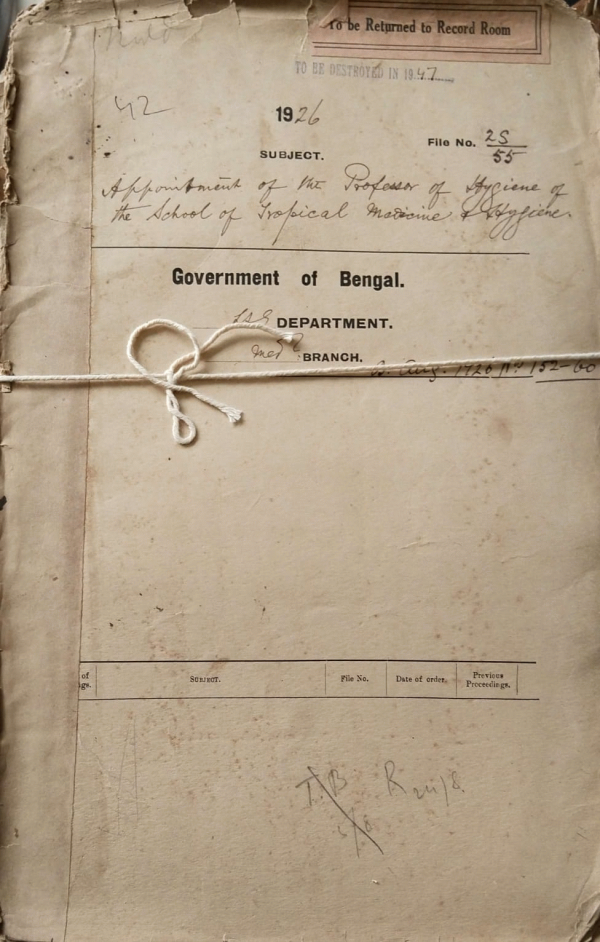 To be Returned to Record Room
TO BE DESTROYED IN 1947
42
1926
File No. 2S/55
SUBJECT.
Appointment of the Professor of Hygiene of
the School of Tropical Medicine & Hygiene.
Government of Bengal.
DEPARTMENT.
Medl BRANCH.
B. Aug. 1926 Nos 152-60
of
gs.
SUBJECT.
File No.
Date of order.
Previous
Proceedings.
T.B R